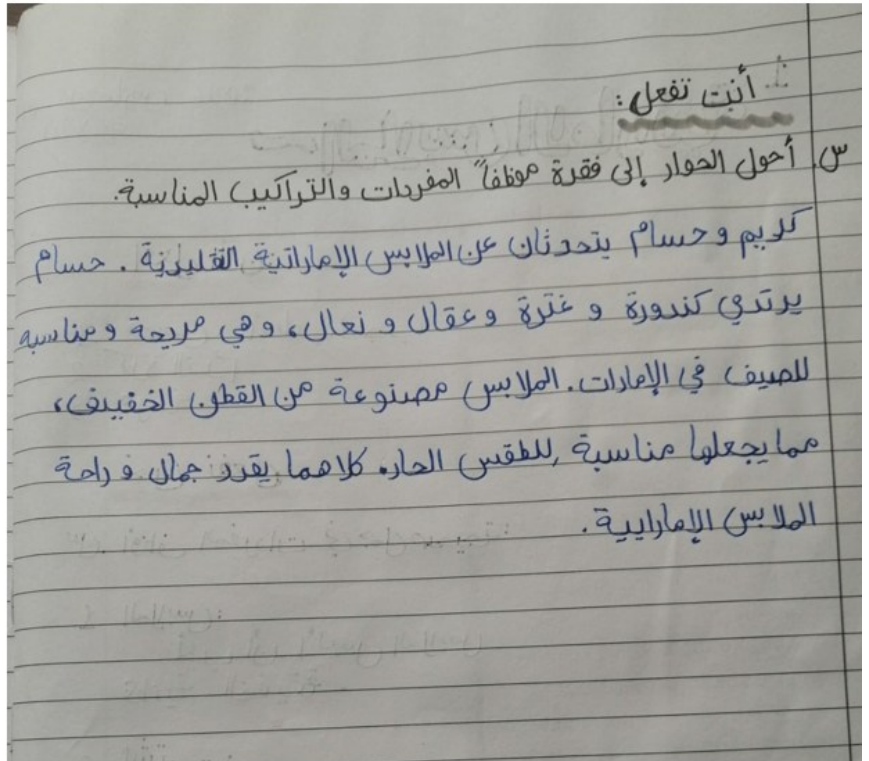 أنت تفعل:
س أحول الحوار إلى فقرة موظفاً المفردات والتراكيب المناسبة.
كريم وحسام يتحدثان عن الملابس الإماراتية التقليدية. حسام
يرتدي كندورة و غترة وعقال و نعال، وهي مريحة ومناسبه
للصيف في الإمارات. الملابس مصنوعة من القطن الخفيف،
مما يجعلها مناسبة للطقس الحار. كلاهما يقرر جمال و راحة
الملابس الإماراتية.